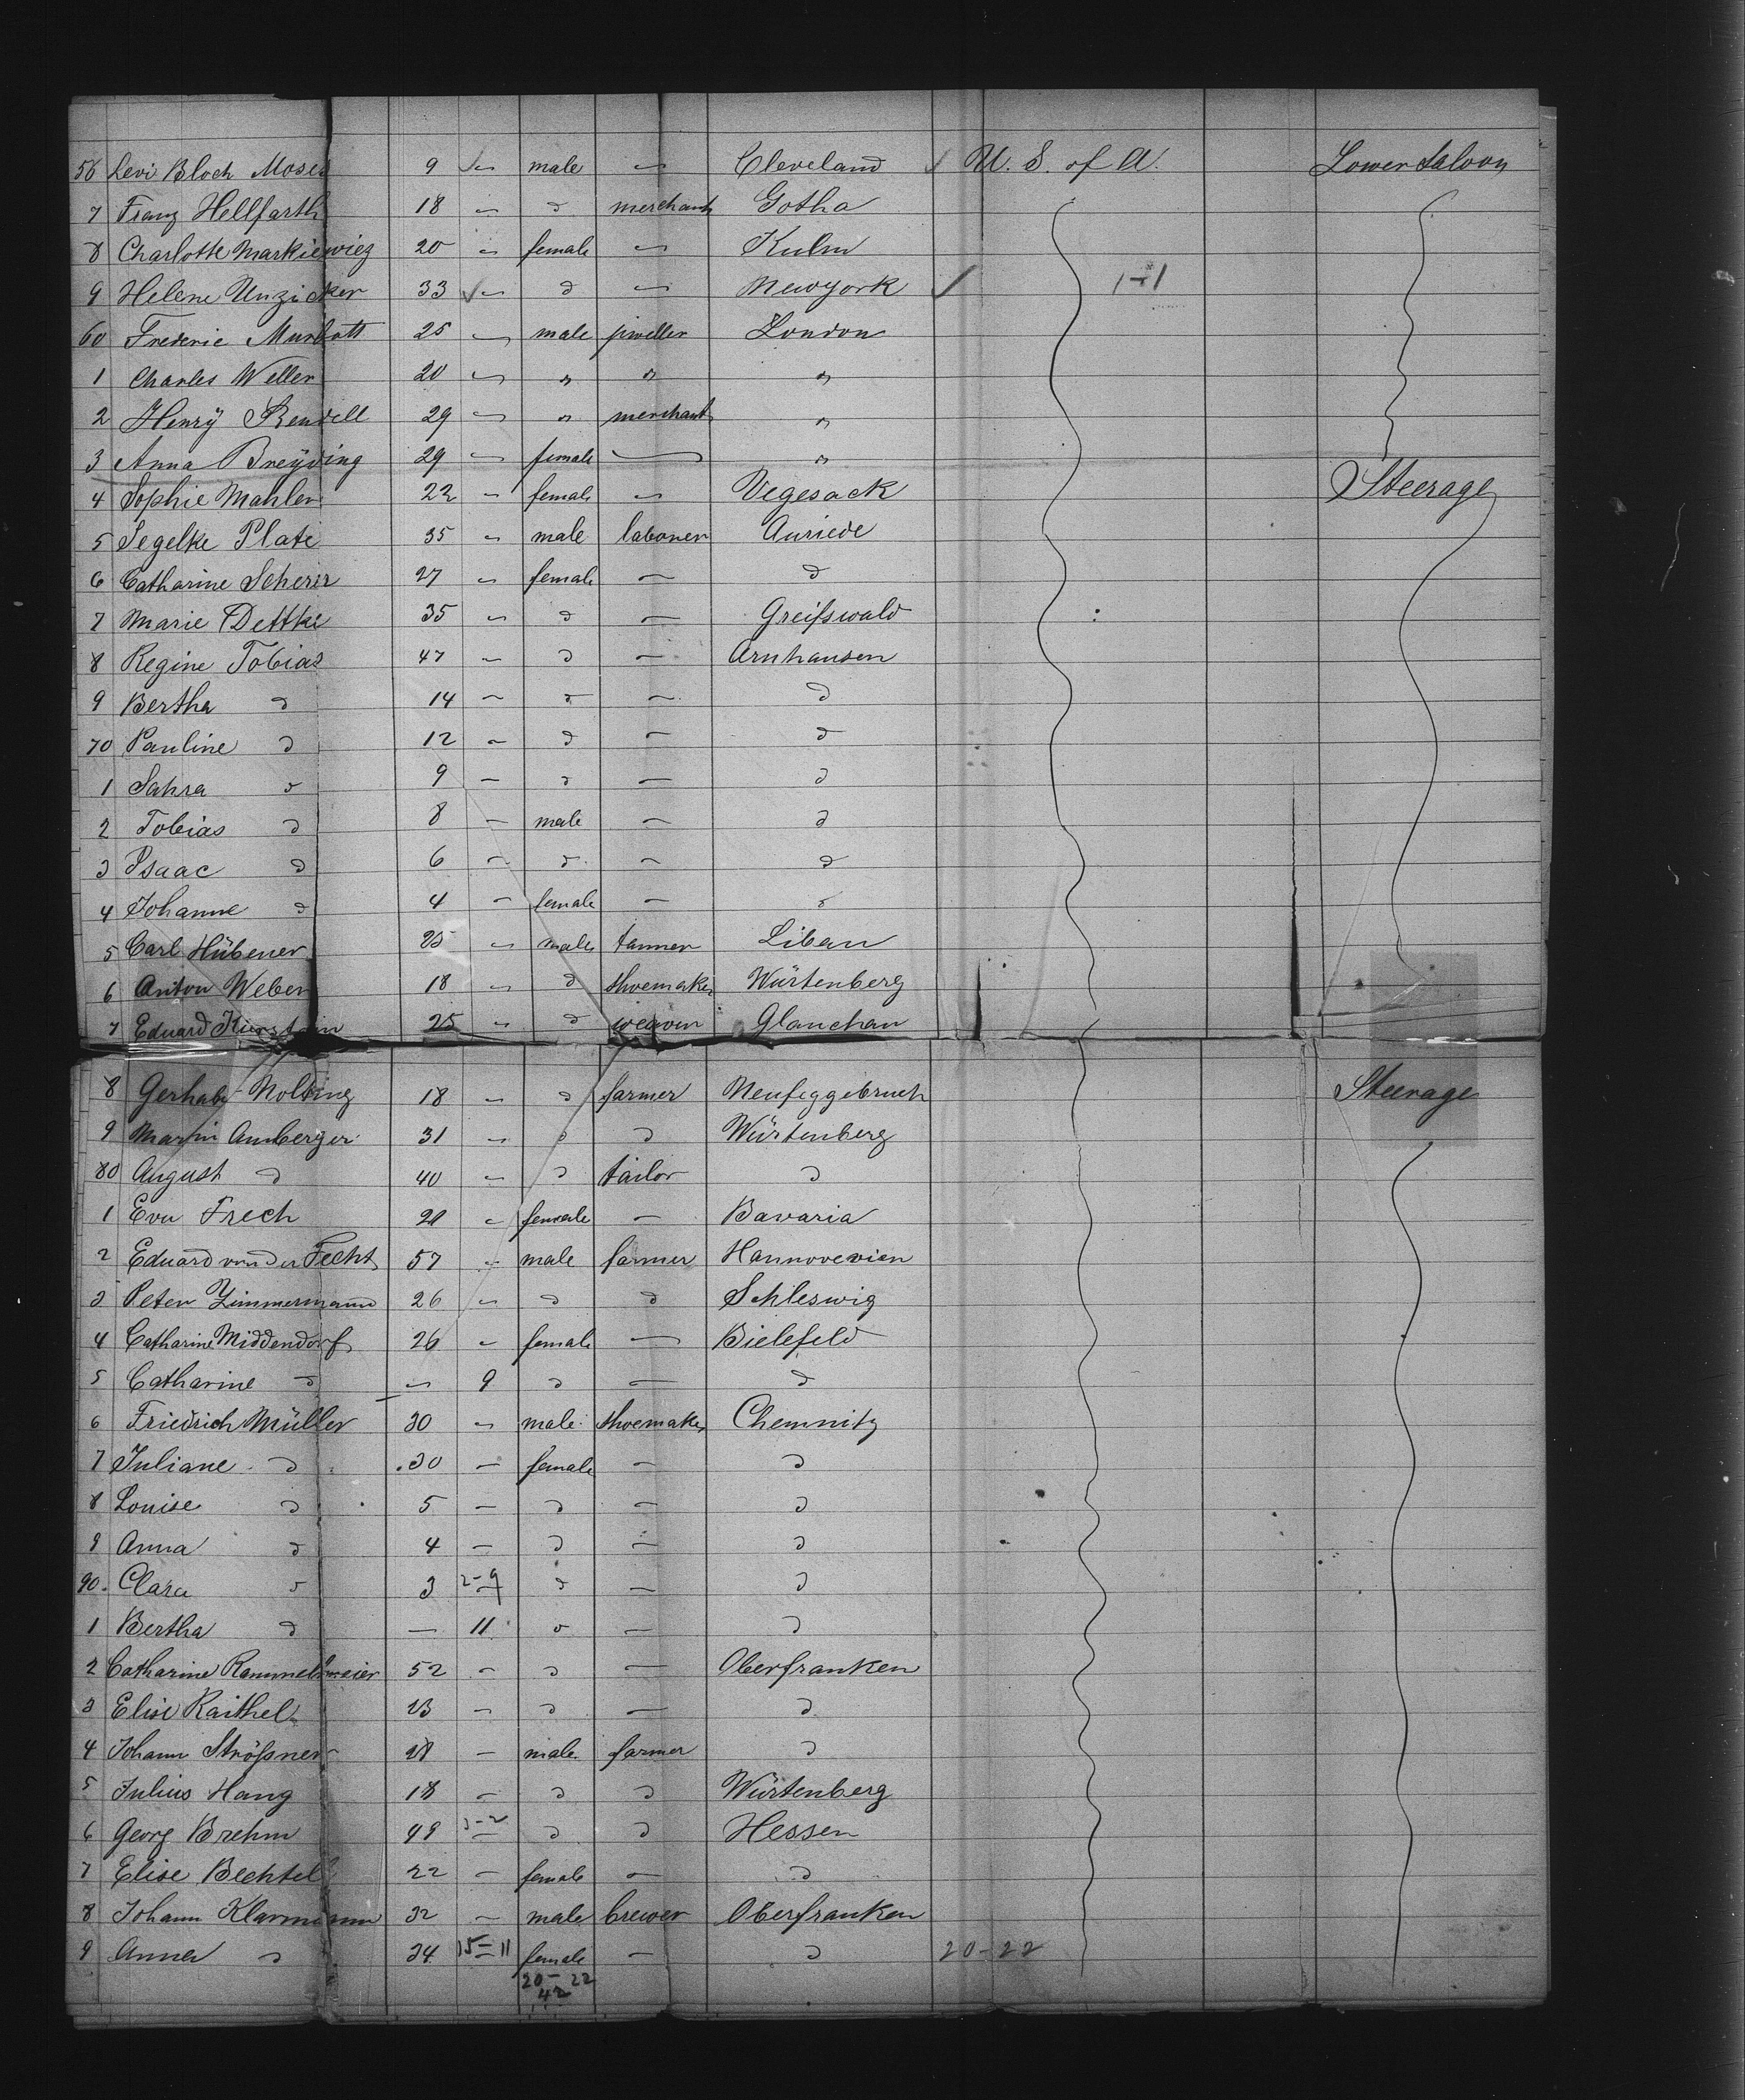 56 Levi Bloch Moses 9 – male – Cleveland U. S. of A. Lower Saloon
7 Franz Hellfarth 18 – d merchant Gotha
8 Charlotte Markiewicz 20 – female – Kulm
9 Helene Unzicker 33 – d – Newyork 1-1
60 Frederic Murbott 25 – male jweller London
1 Charles Weller 20 – " " "
2 Henry Rendell 29 – " merchant "
3 Anna Breyding 29 – female – "
4 Sophie Mahler 22 – female – Vegesack Steerage
5 Segelke Plate 35 – male laborer Auriede
6 Catharine Scherer 27 – female – d
7 Marie Dettke 35 – d – Greifswald
8 Regine Tobias 47 – d – Arnhausen
9 Bertha d 14 – d – d
70 Pauline d 12 – d – d
1 Sahra d 9 – d – d
2 Tobias d 8 – male – d
3 Isaac d 6 – d – d
4 Johanne d 4 – female – d
5 Carl Hübener 25 – male tanner Libau
6 Anton Weber 18 – d shoemaker Würtenberg
7 Eduard 25 – d weaver Glauchau
8 Nolting 18 – d farmer Steerage
9 Martin Amberger 31 – d d Würtenberg
80 August d 40 – d tailor d
1 Eva Frech 21 – female – Bavaria
2 Eduard von der Fecht 57 – male farmer Hannoverien
3 Peter Zimmermann 26 – d d Schleswig
4 Catharine Middendorf 26 – female – Bielefeld
5 Catharine d – 9 d – d
6 Friedrich Müller 30 – male shoemaker Chemnitz
7 Juliane d 30 – female – d
8 Louise d 5 – d – d
9 Anna d 4 – d – d
90 Clara d 3 2-9 d – d
1 Bertha d – 11 d – d
2 Catharine Rammelsmeier 52 – d – Oberfranken
3 Elise Raithel 23 – d – d
4 Johann Strößner 28 – male farmer d
5 Julius Haug 18 – d d Würtenberg
6 Georg Brehm 49 3-2 d d Hessen
7 Elise Bechtel 22 – female – d
8 Johann Klarmann 32 – male brewer Oberfranken
9 Anna d 34 15-11 female – d 20-22
20-22
42